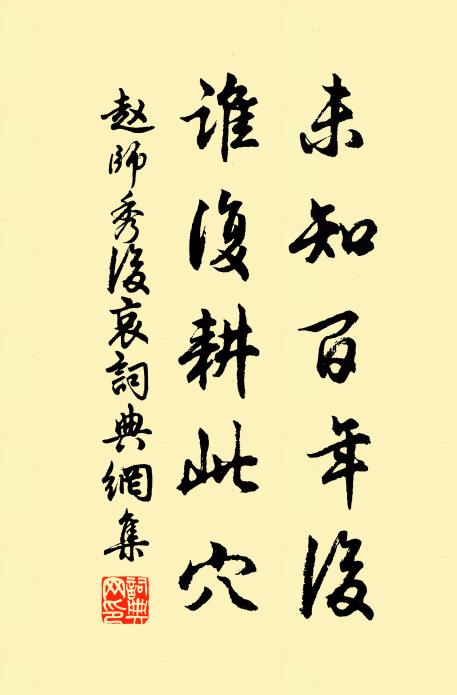 未知百年後
誰復耕此穴
趙師秀後哀詞典網集
詞典
網印